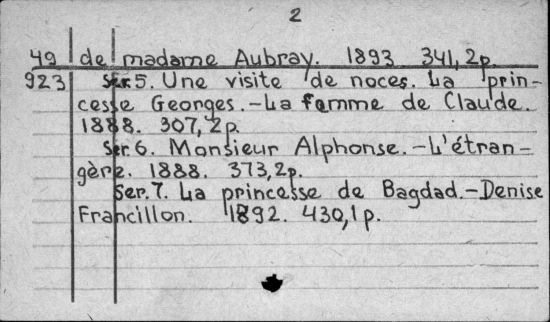 2
49 de madame Aubray. 1893 341,2p.
923 Ser.5. Une visite de noces. La prin-
cesse Georges.-La femme de Claude.
1888. 307,2p.
Ser.6. Monsieur Alphonse.-L'étran-
gère. 1888. 373,2p.
Ser.7. La princesse de Bagdad.-Denise
Francillon. 1892. 430,1p.